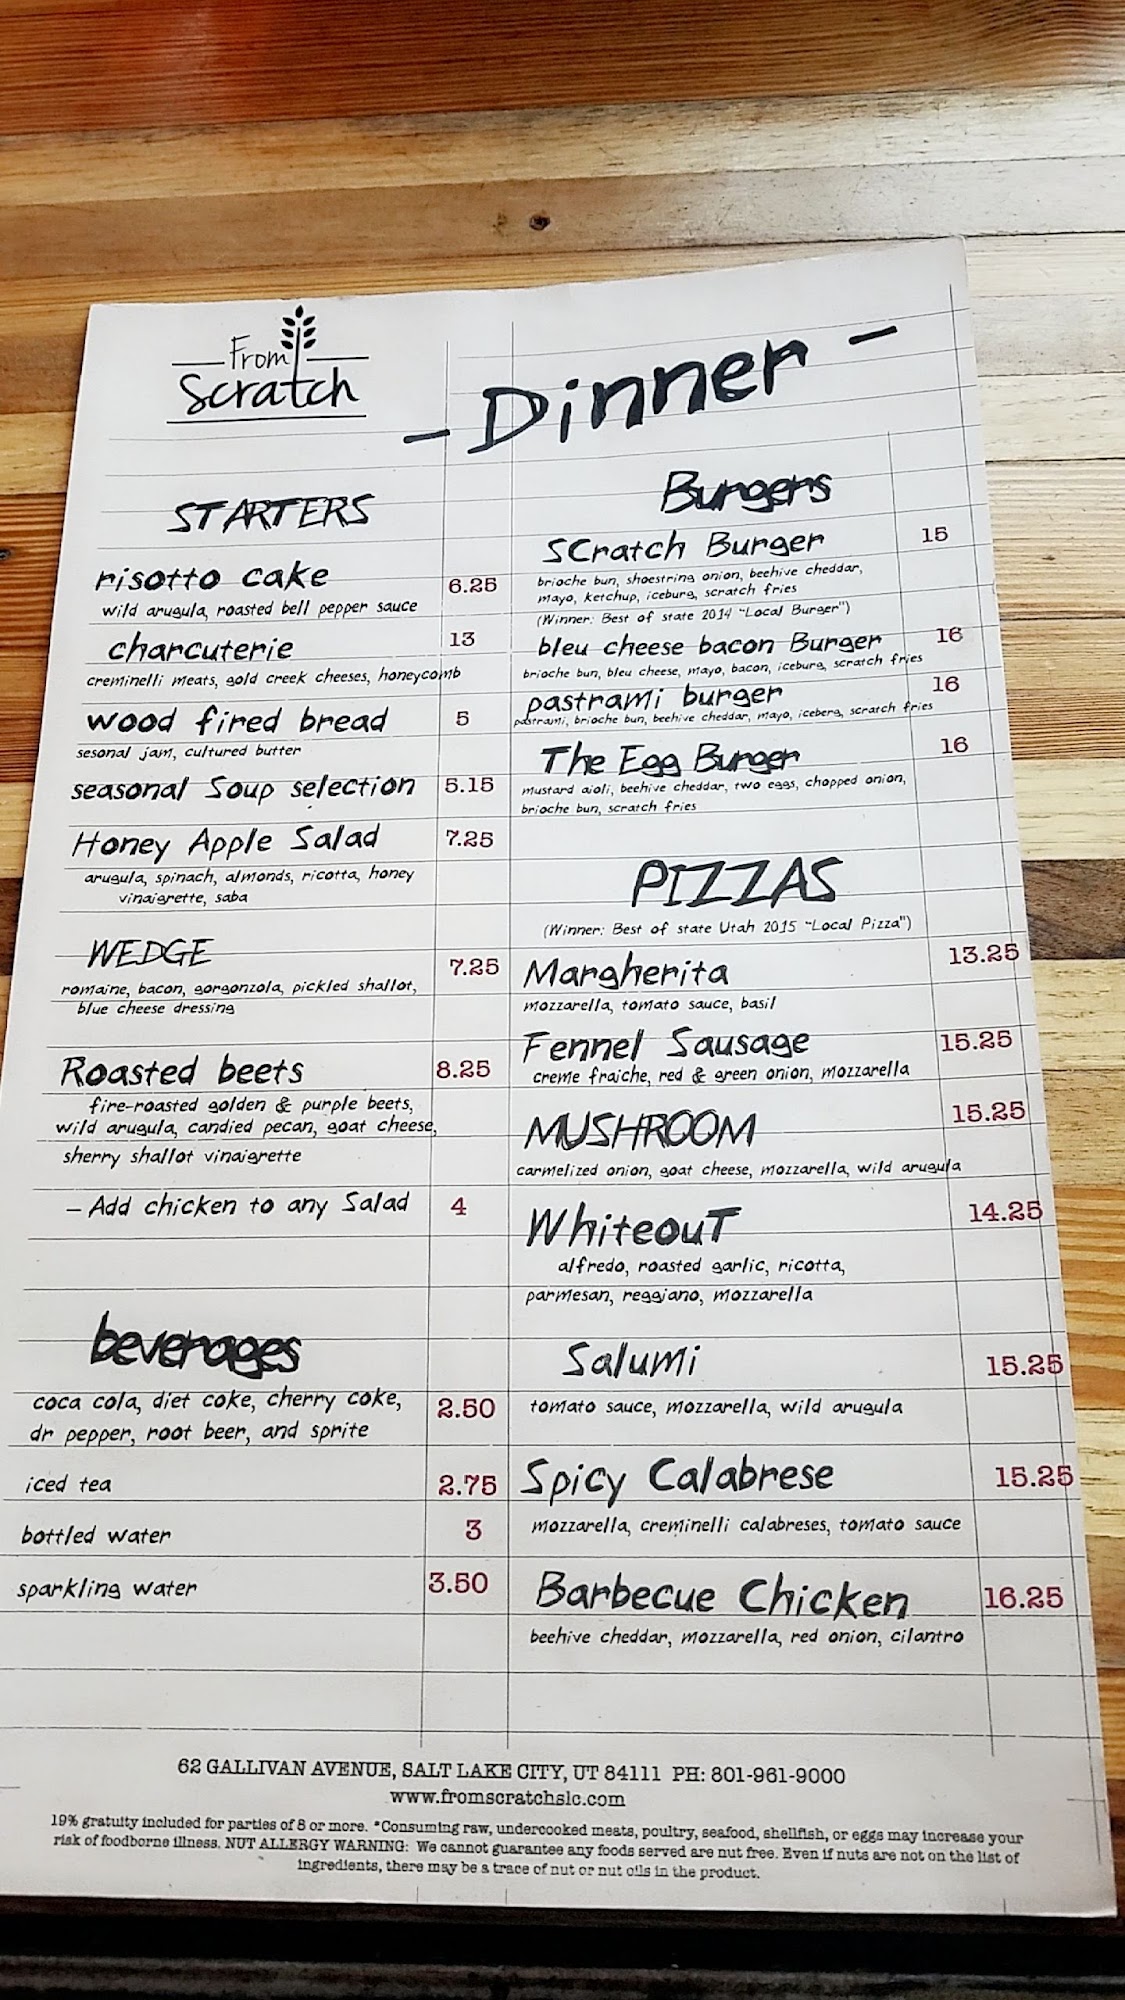 From
Scratch
- Dinner -
STARTERS
risotto cake 6.25
wild arugula, roasted bell pepper sauce
charcuterie 13
creminelli meats, gold creek cheeses, honeycomb
wood fired bread 5
sesonal jam, cultured butter
seasonal Soup selection 5.15
Honey Apple Salad 7.25
arugula, spinach, almonds, ricotta, honey
vinaigrette, saba
WEDGE 7.25
romaine, bacon, gorgonzola, pickled shallot,
blue cheese dressing
Roasted beets 8.25
fire-roasted golden & purple beets,
wild arugula, candied pecan, goat cheese,
sherry shallot vinaigrette
- Add chicken to any Salad 4
beverages
coca cola, diet coke, cherry coke, 2.50
dr pepper, root beer, and sprite
iced tea 2.75
bottled water 3
sparkling water 3.50
Burgers
SCratch Burger 15
brioche bun, shoestring onion, beehive cheddar,
mayo, ketchup, iceburg, scratch fries
(Winner: Best of state 2014 "Local Burger")
bleu cheese bacon Burger 16
brioche bun, bleu cheese, mayo, bacon, iceburg, scratch fries
pastrami burger 16
pastrami, brioche bun, beehive cheddar, mayo, iceberg, scratch fries
The Egg Burger 16
mustard aioli, beehive cheddar, two eggs, chopped onion,
brioche bun, scratch fries
PIZZAS
(Winner: Best of state Utah 2015 "Local Pizza")
Margherita 13.25
mozzarella, tomato sauce, basil
Fennel Sausage 15.25
creme fraiche, red & green onion, mozzarella
MUSHROOM 15.25
carmelized onion, goat cheese, mozzarella, wild arugula
WhiteouT 14.25
alfredo, roasted garlic, ricotta,
parmesan, reggiano, mozzarella
Salumi 15.25
tomato sauce, mozzarella, wild arugula
Spicy Calabrese 15.25
mozzarella, creminelli calabreses, tomato sauce
Barbecue Chicken 16.25
beehive cheddar, mozzarella, red onion, cilantro
62 GALLIVAN AVENUE, SALT LAKE CITY, UT 84111 PH: 801-961-9000
www.fromscratchslc.com
19% gratuity included for parties of 8 or more. *Consuming raw, undercooked meats, poultry, seafood, shellfish, or eggs may increase your
risk of foodborne illness. NUT ALLERGY WARNING: We cannot guarantee any foods served are nut free. Even if nuts are not on the list of
ingredients, there may be a trace of nut or nut oils in the product.